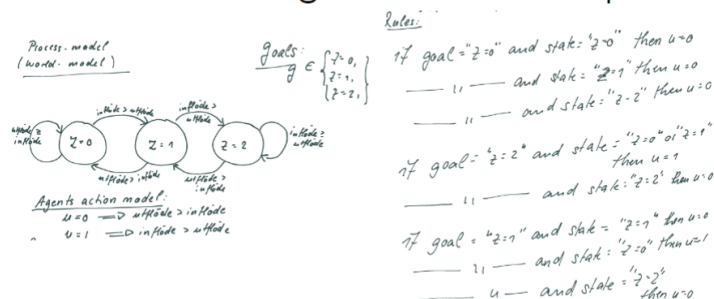 Process-model
(world-model)
goals:
g ∈ { z=0,
z=1,
z=2, }
inflöde > utflöde
inflöde >
utflöde
utflöde ≥
inflöde
z=0
z=1
z=2
inflöde ≥
utflöde
utflöde > inflöde
utflöde >
inflöde
Agents action model:
u=0 ⇒ utflöde > inflöde
u=1 ⇒ inflöde > utflöde
Rules:
if goal="z=0" and state="z=0" then u=0
—— 〃 —— and state="z=1" then u=0
—— 〃 —— and state="z=2" then u=0
if goal="z=2" and state="z=0" or "z=1"
then u=1
—— 〃 —— and state="z=2" then u=0
if goal="z=1" and state="z=1" then u=0
—— 〃 —— and state="z=0" then u=1
—— 〃 —— and state="z=2"
then u=0